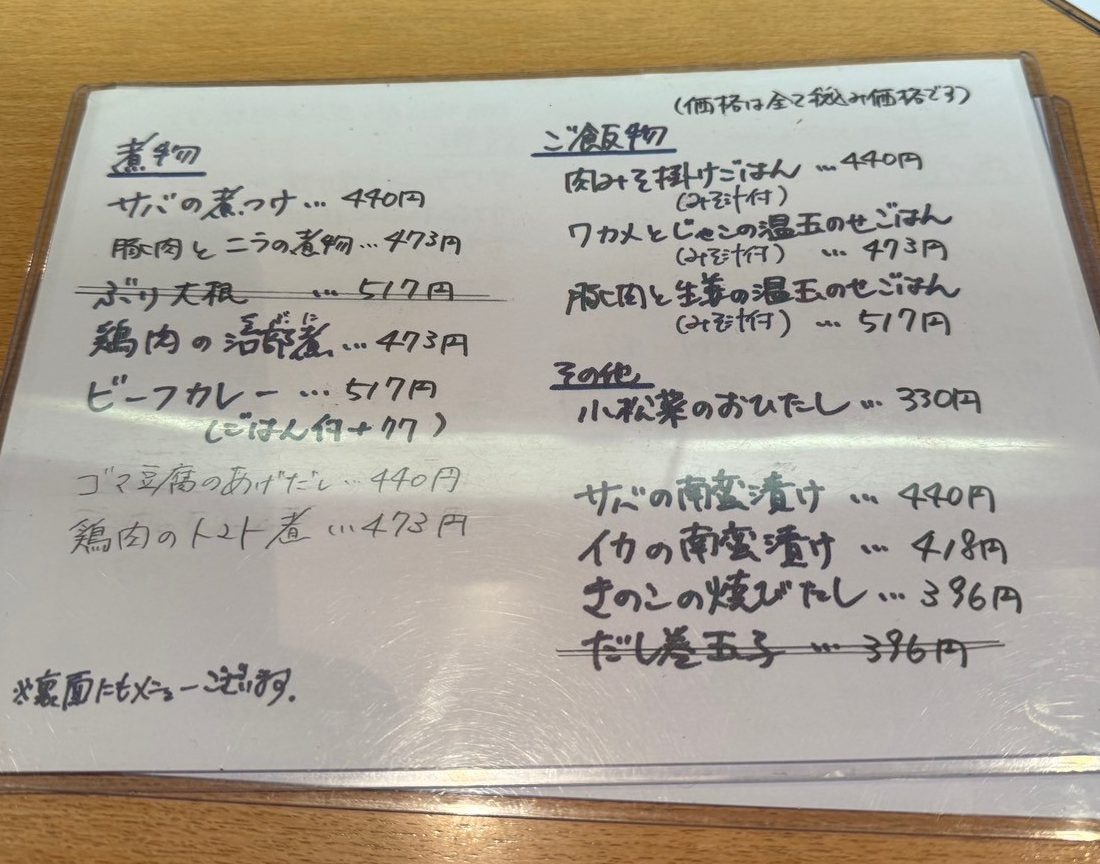 (価格は全て税込み価格です)
煮物
サバの煮つけ…440円
豚肉とニラの煮物…473円
ぶり大根 …517円
鶏肉の治部煮…473円
じぶに
ビーフカレー…517円
(ごはん付+77)
ゴマ豆腐のあげだし…440円
鶏肉のトマト煮…473円
※裏面にもメニューございます。
ご飯物
肉みそ掛けごはん…440円
(みそ汁付)
ワカメとじゃこの温玉のせごはん
(みそ汁付) …473円
豚肉と生姜の温玉のせごはん
(みそ汁付) …517円
その他
小松菜のおひたし…330円
サバの南蛮漬け…440円
イカの南蛮漬け…418円
きのこの焼びたし…396円
だし巻玉子…396円